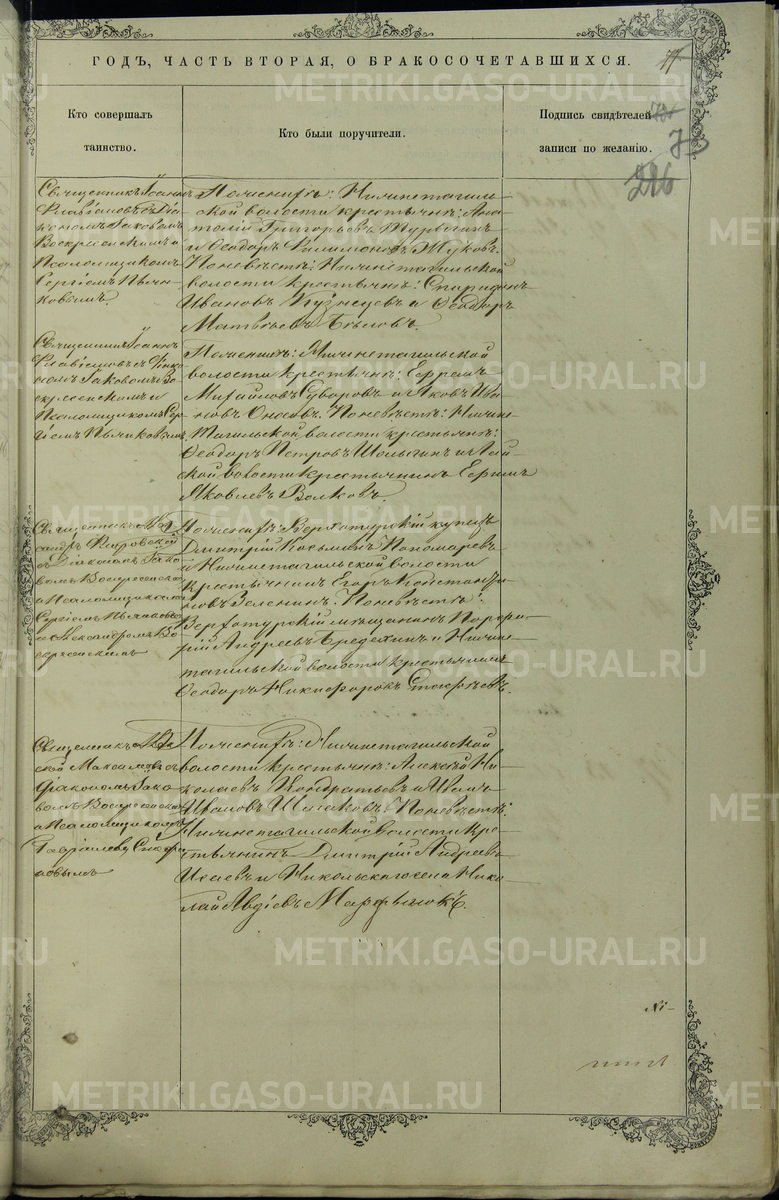 ГОДЪ, ЧАСТЬ ВТОРАЯ, О БРАКОСОЧЕТАВШИХСЯ.
77
Кто совершалъ
таинство.
Кто были поручители.
Подпись свидѣтелей
записи по желанію.
73
216
Священникъ Іоаннъ
Флавіановъ съ Діа-
кономъ Іаковомъ
Воскресенскимъ и
Псаломщикомъ
Сергіемъ Пьян-
ковымъ.
По женихѣ: Нижнетагиль-
ской волости крестьяне: Ана-
толій Григорьевъ
и Ѳеодоръ Филимоновъ Жуковъ.
По невѣстѣ: Нижнетагильской
волости крестьяне: Спиридонъ
Ивановъ Кузнецовъ и Ѳеодоръ
Матвѣевъ Бѣловъ.
Священникъ Іоаннъ
Флавіановъ съ Діако-
номъ Іаковомъ Во-
скресенскимъ и
Псаломщикомъ Сер-
гіемъ Пьянковымъ.
По женихѣ: Нижнетагильской
волости крестьяне: Ефремъ
Михайловъ Суворовъ и Яковъ Ива-
новъ По невѣстѣ: Нижне-
тагильской волости крестьяне:
Ѳеодоръ Петровъ Шолыгинъ и
ской волости крестьянинъ Ефимъ
Яковлевъ Волковъ.
Священникъ
съ Діакономъ Іако-
вомъ Воскресенскимъ
и Псаломщиками
Сергіемъ Пьянковымъ
и Александромъ Во-
скресенскимъ
По женихѣ: Верхотурскій купецъ
Дмитрій Козьминъ Пономаревъ
и Нижнетагильской волости
крестьянинъ Егоръ Константи-
новъ Зеленинъ. По невѣстѣ:
Верхотурскій мѣщанинъ Порфи-
рій Андреевъ и Нижне-
тагильской волости крестьянинъ
Ѳеодоръ Никифоровъ
Священникъ
Діакономъ Іако-
вомъ Воскресенскимъ
и Псаломщикомъ
По женихѣ: Нижнетагильской
волости крестьяне: Алексѣй Ни-
колаевъ Кондратьевъ и Иванъ
Ивановъ По невѣстѣ:
Нижнетагильской волости кре-
стьянинъ Дмитрій Андреевъ
Исаевъ и Никольскаго села Нико-
лай Авдіевъ
METRIKI.GASO-URAL.RU